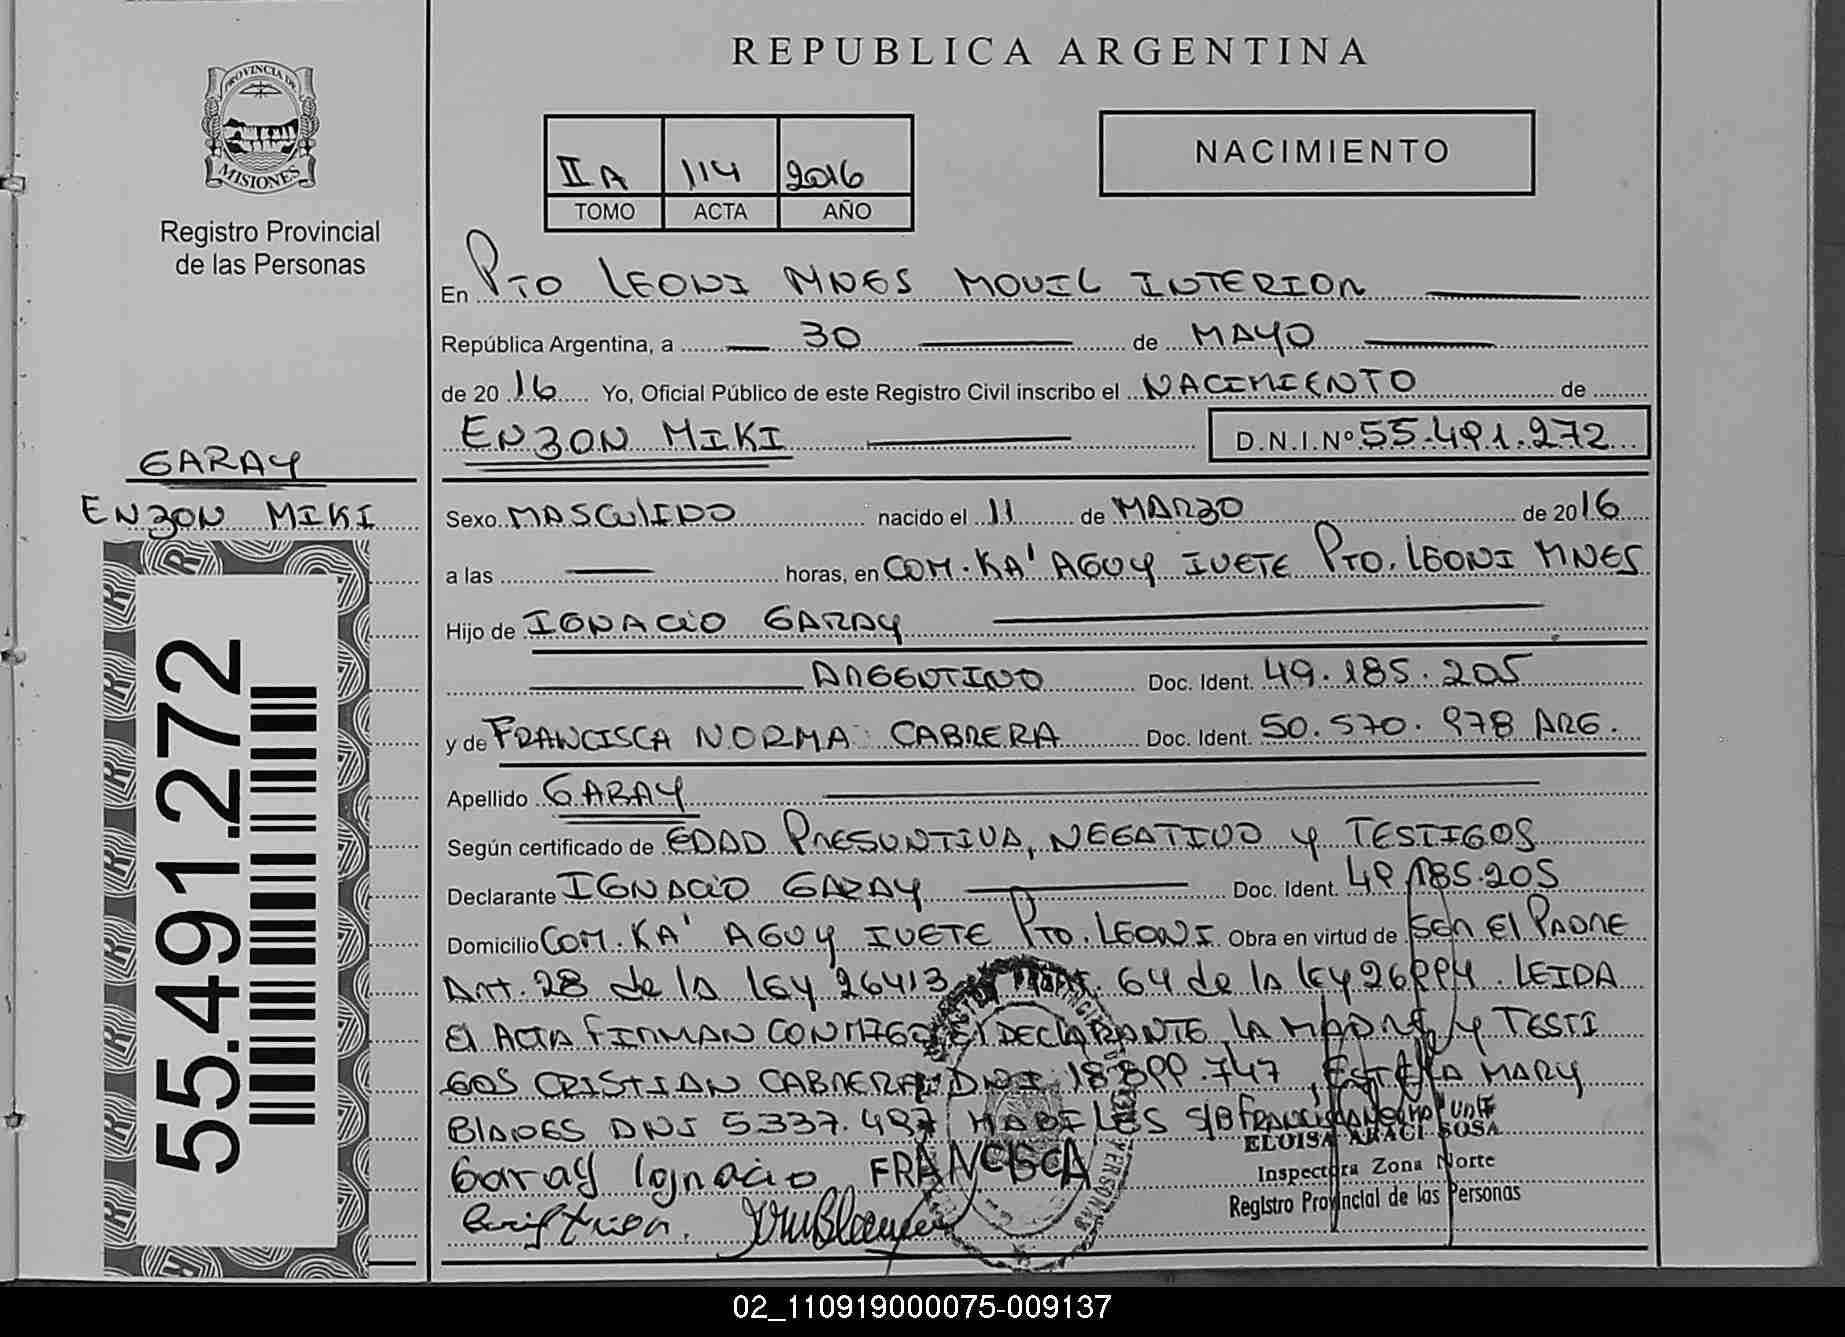 REPUBLICA ARGENTINA
PROVINCIA DE
MISIONES
Registro Provincial
de las Personas
II A 114 2016
TOMO ACTA AÑO
NACIMIENTO
En Pto LEONI MNES MOVIL INTERIOR
República Argentina, a 30 de MAYO
de 2016 Yo, Oficial Público de este Registro Civil inscribo el NACIMIENTO de
ENZON MIKI D.N.I.Nº 55.491.272
GARAY
ENZON MIKI
Sexo MASCULINO nacido el 11 de MARZO de 2016
a las horas, en COM. KA' AGUY IVETE Pto. LEONI MNES
Hijo de IGNACIO GARAY
ARGENTINO Doc. Ident. 49.185.205
y de FRANCISCA NORMA CABRERA Doc. Ident. 50.570.978 ARG.
Apellido GARAY
Según certificado de EDAD PRESUNTIVA, NEGATIVO y TESTIGOS
Declarante IGNACIO GARAY Doc. Ident. 49.185.205
Domicilio COM. KA' AGUY IVETE Pto. LEONI Obra en virtud de SER El PADRE
Art. 28 de la ley 26413 64 de la ley 26994. LEIDA
El ACTA FIRMAN CONMIGO El DECLARANTE, LA MADRE y TESTI
GOS CRISTIAN CABRERA DNI 18.899.747, ESTELA MARY
BlADES DNI 5.337.497 HABILES S/B
ELOISA ARACI SOSA
Inspectora Zona Norte
Registro Provincial de las Personas
Garay Ignacio FRANCISCA
55.491.272
02_110919000075-009137